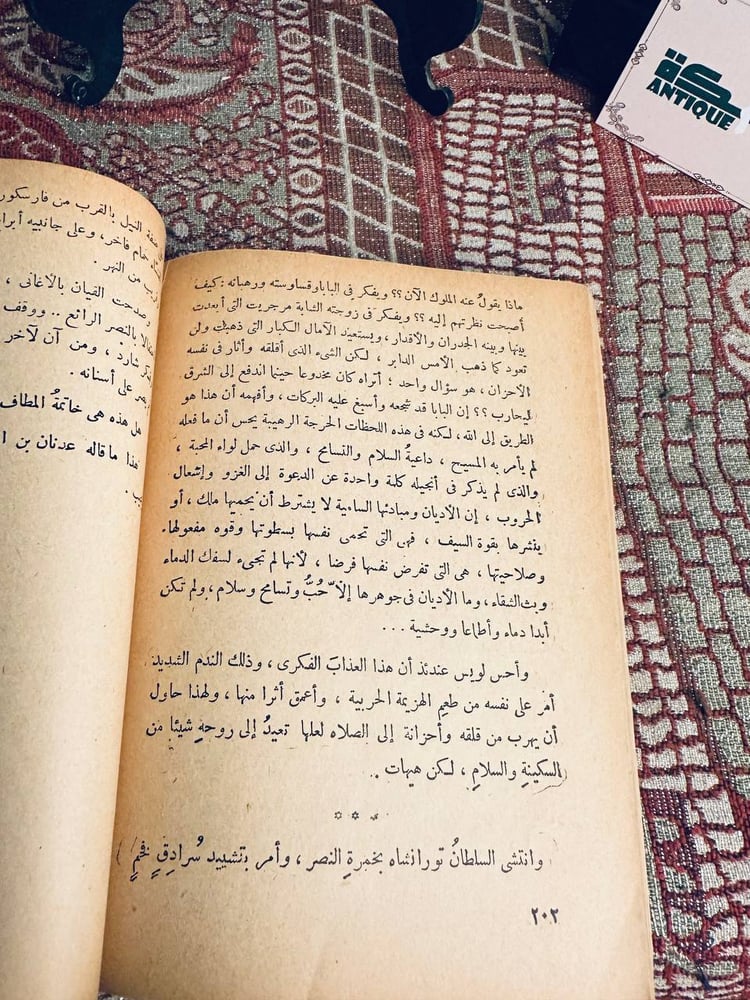 ماذا يقول عنه الملوك الآن ؟؟ ويفكر فى البابا وقساوسته ورهبانه : كيف
أصبحت نظرتهم إليه ؟؟ ويفكر فى زوجته الشابة مرجريت التى أبعدت
بينها وبينه الجدران والأقدار ، ويستعيد الآمال الكبار التى ذهبت ولن
تعود كما ذهب الأمس الدابر ، لكن الشىء الذى أقلقه وأثار فى نفسه
الأحزان ، هو سؤال واحد ؛ أتراه كان مخدوعا حينما اندفع إلى الشرق
ليحارب ؟؟ إن البابا قد شجعه وأسبغ عليه البركات ، وأفهمه أن هذا هو
الطريق إلى الله ، لكنه فى هذه اللحظات الحرجة الرهيبة يحس أن ما فعله
لم يأمر به المسيح ، داعيةُ السلام والتسامح ، والذى حمل لواء المحبة ،
والذى لم يذكر فى أنجيله كلمة واحدة عن الدعوة إلى الغزو وإشعال
الحروب ، إن الأديان ومبادئها السامية لا يشترط أن يحميها ملك ، أو
ينشرها بقوة السيف ، فهى التى تحمى نفسها بسطوتها وقوه مفعولها.
وصلاحيتها ، هى التى تفرض نفسها فرضا ، لأنها لم تجىء لسفك الدماء
وبث الشقاء ، وما الأديان فى جوهرها إلاّ حُبٌّ وتسامح وسلام ، ولم تكن
أبدا دماء وأطماعا ووحشية ...
وأحس لويس عندئذ أن هذا العذاب الفكرى ، وذلك الندم الشديد
أمر على نفسه من طعم الهزيمة الحربية ، وأعمق أثرا منها ، ولهذا حاول
أن يهرب من قلقه وأحزانة إلى الصلاه لعلها تعيدُ إلى روحهِ شيئا من
السكينةِ والسلامِ ، لكن هيهات ..
* * *
وانتشى السلطانُ تورانشاه بخمرةِ النصر ، وأمر بتشييد سُرادقٍ فخمٍ
٢٠٢
ضفة النيل بالقرب من فارسكور
خام فاخر ، وعلى جانبيه أبرا
من النهر .
وصدحت القيان بالأغانى ،
بالنصر الرائع .. ووقف
شارد ، ومن آن لآخر
على أسنانه .
هل هذه هى خاتمةُ المطاف
هذا ما قاله عدنان بن ا
ANTIQUE